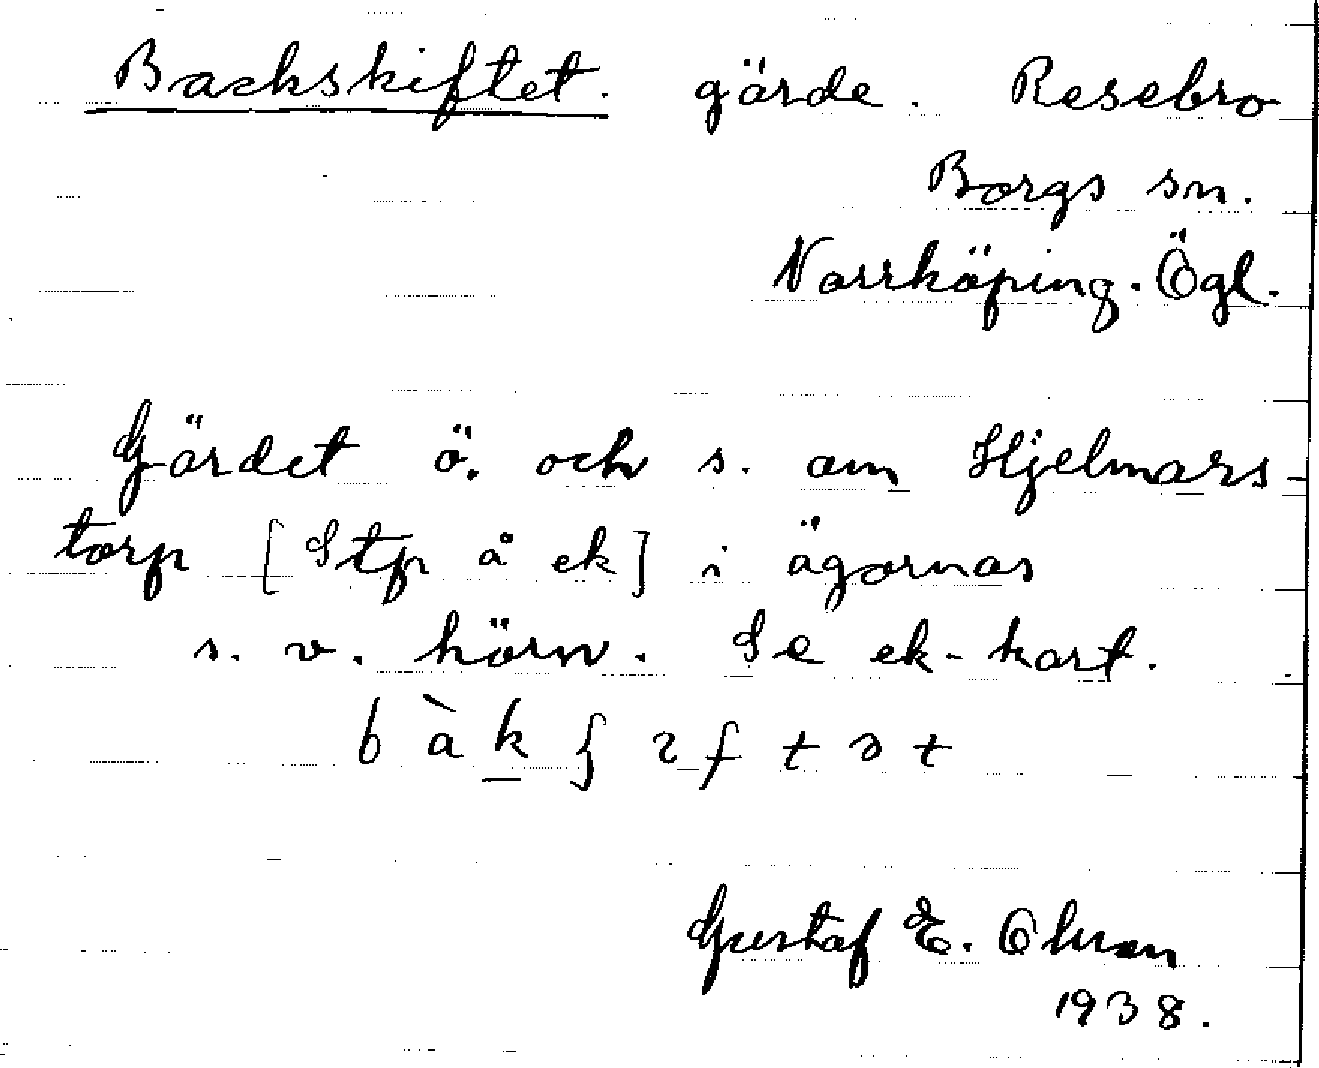 Backskiftet. gärde. Resebro
Borgs sn.
Norrköping. Ögl.
Gärdet ö. och s. om Hjelmars-
torp [Stp å ek] i ägornas
s. v. hörn. Se ek-kart.
Gustaf E. Olsson
1938.